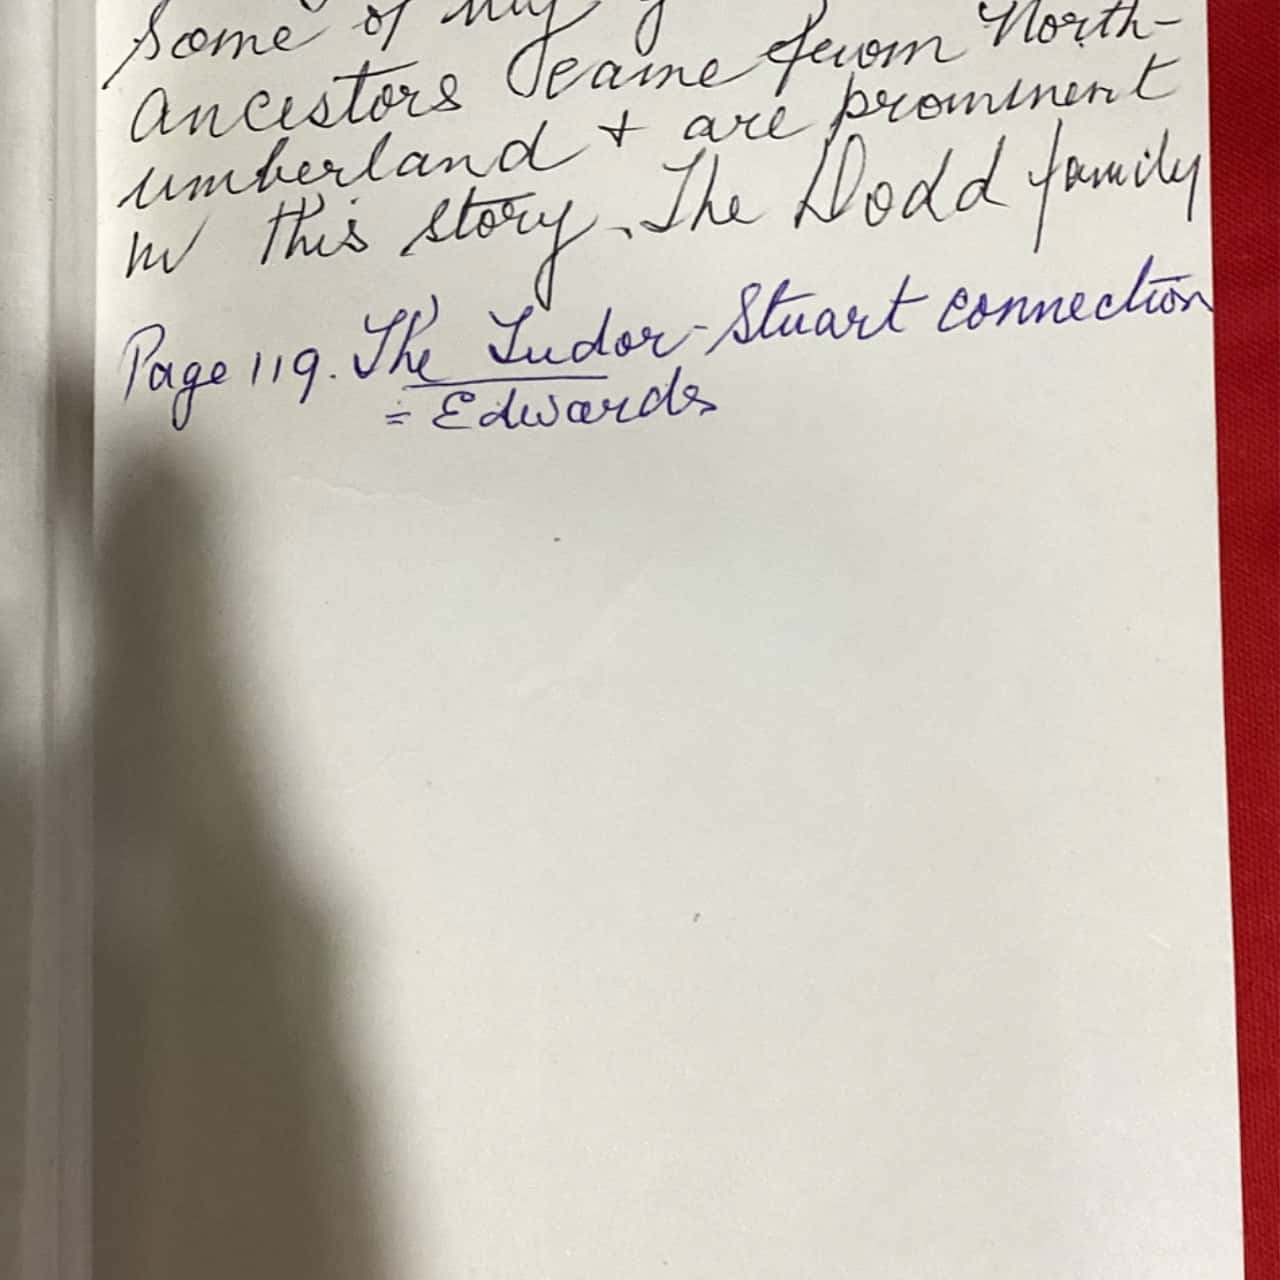 Some of my
ancestors came from North-
umberland + are prominent
in this story. The Dodd family
Page 119. The Tudor-Stuart connection
= Edwards